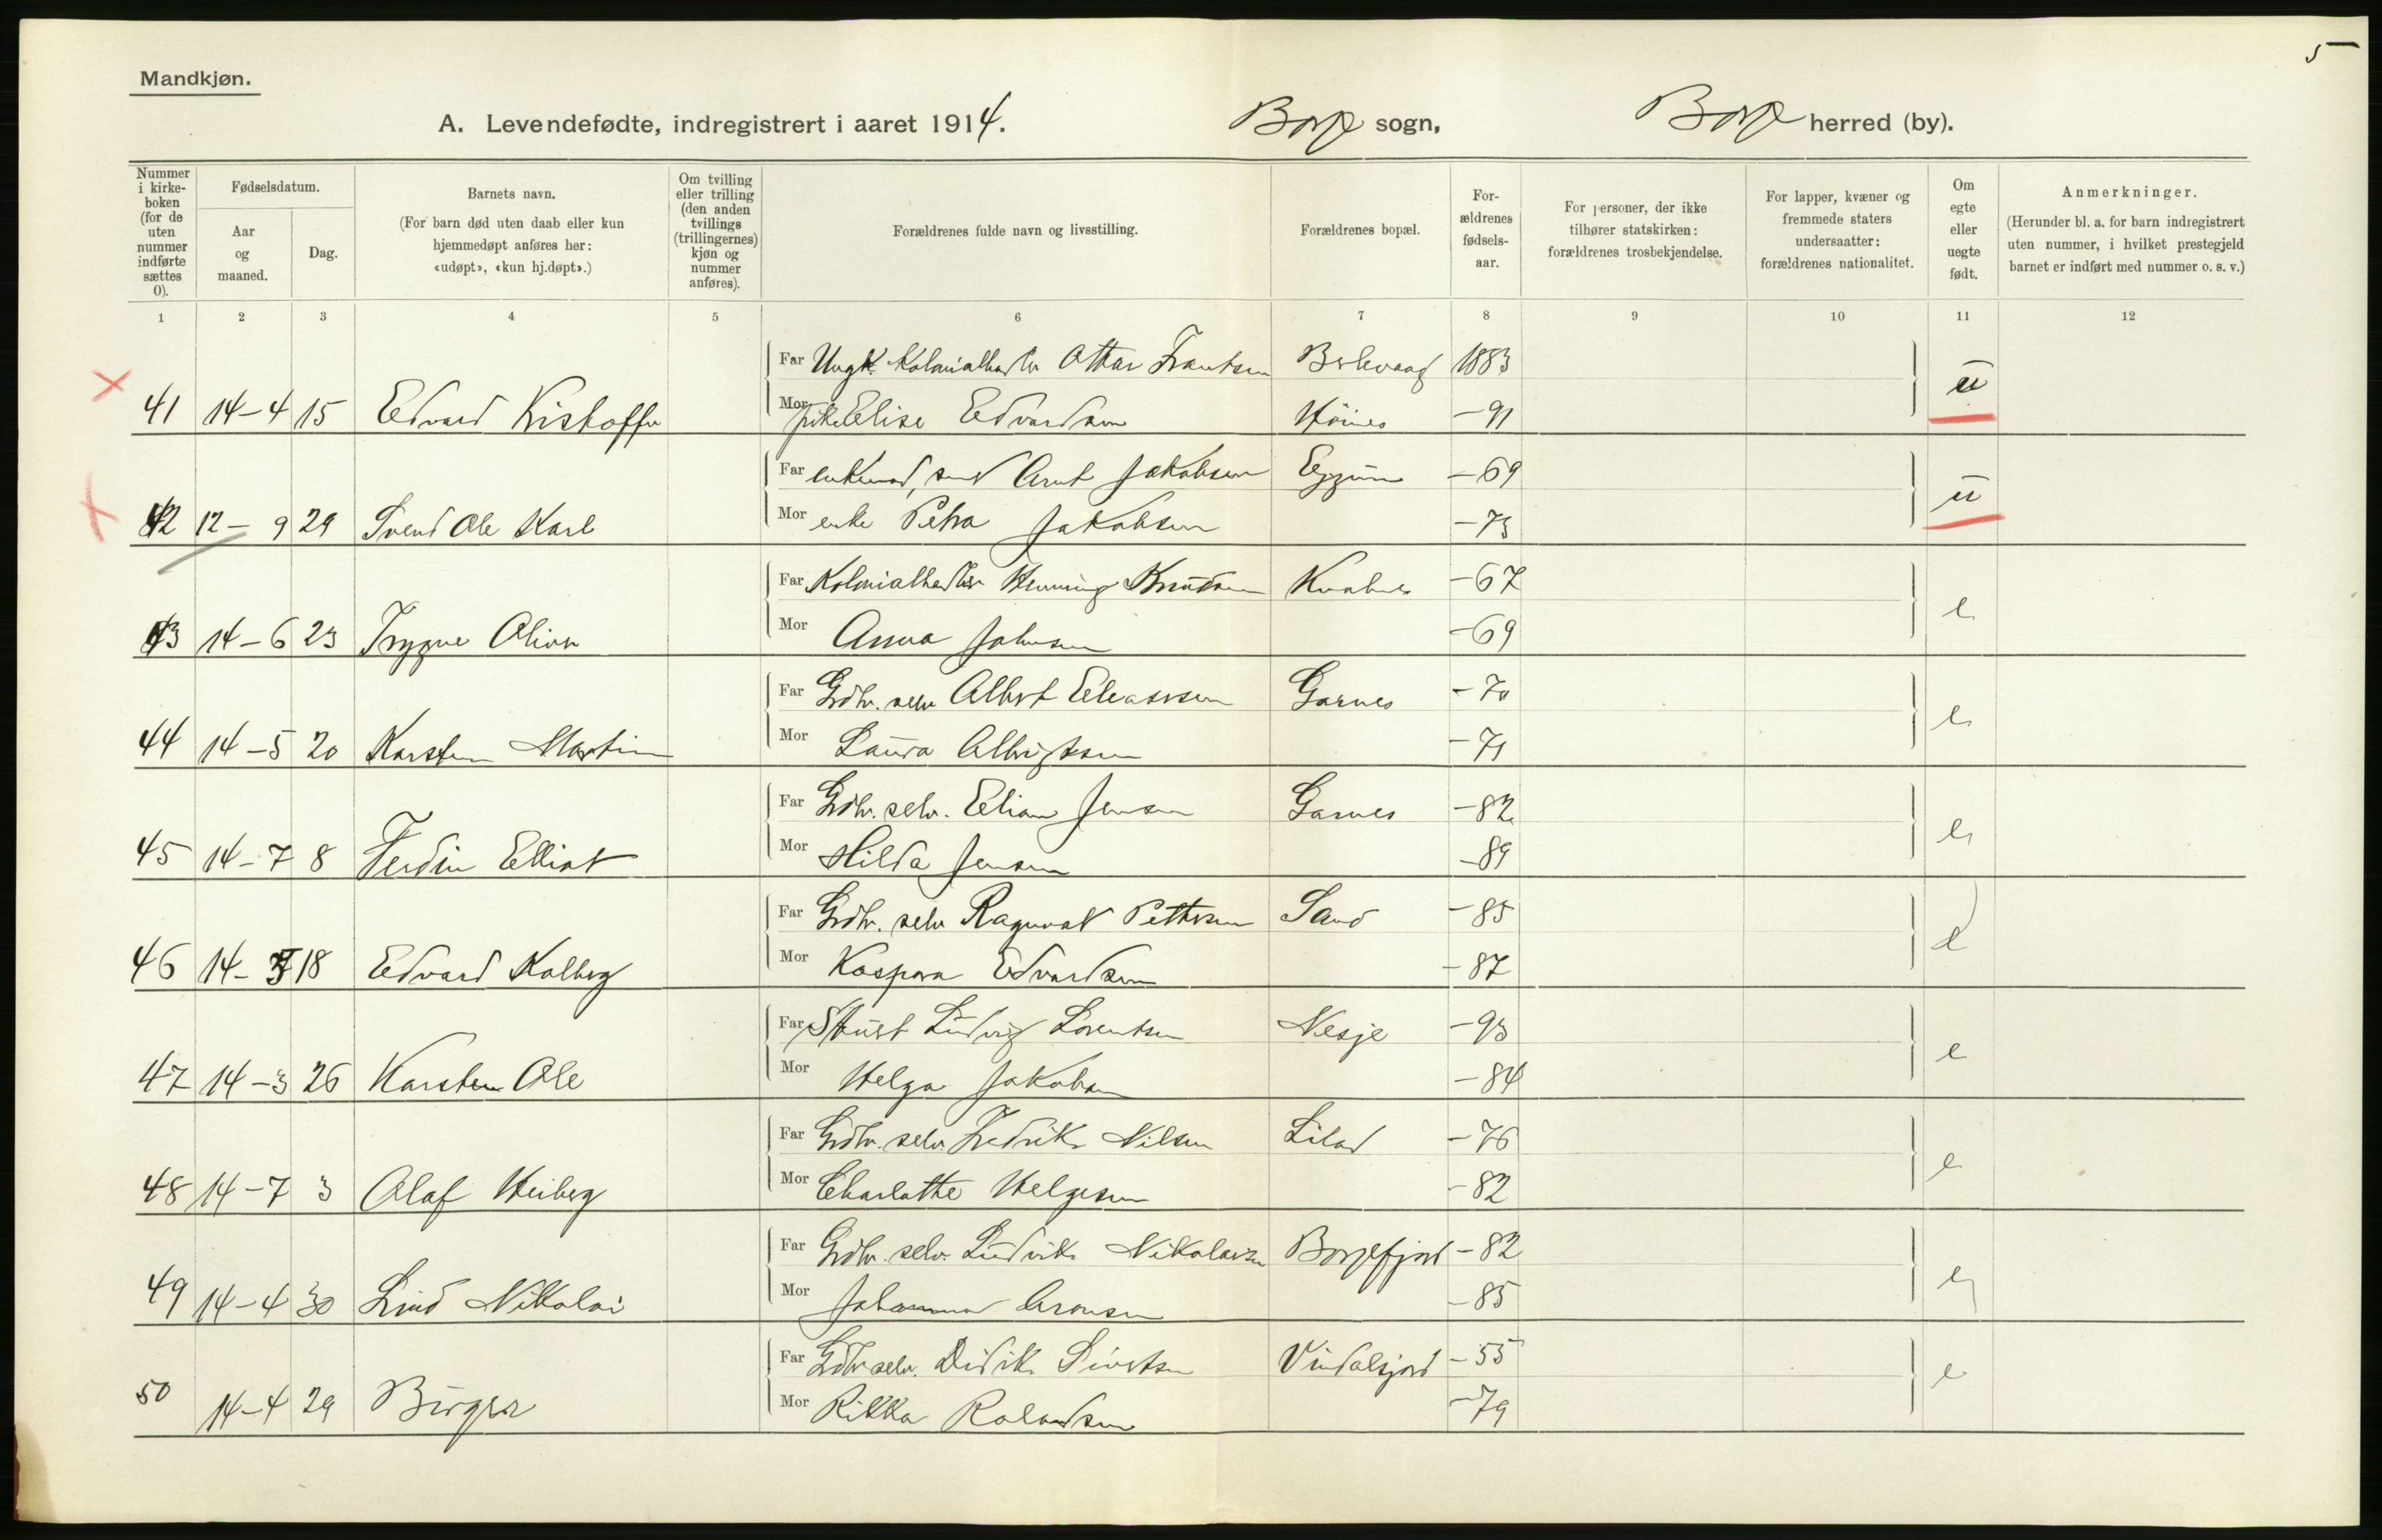 5
Mandkjøn.
A. Levendefødte, indregistrert i aaret 1914. Borge sogn, Borge herred (by).
Nummer i kirke-boken (for de uten nummer indførte sættes 0).
Fødselsdatum.
Aar og maaned.
Dag.
Barnets navn.
(For barn død uten daab eller kun hjemmedøpt anføres her: «udøpt», «kun hj.døpt».)
Om tvilling eller trilling (den anden tvillings (trillingernes) kjøn og nummer anføres).
Forældrenes fulde navn og livsstilling.
Forældrenes bopæl.
For-ældrenes fødsels-aar.
For personer, der ikke tilhører statskirken: forældrenes trosbekjendelse.
For lapper, kvæner og fremmede staters undersaatter: forældrenes nationalitet.
Om egte eller uegte født.
Anmerkninger.
(Herunder bl. a. for barn indregistrert uten nummer, i hvilket prestegjeld barnet er indført med nummer o. s. v.)
1 2 3 4 5 6 7 8 9 10 11 12
Far Ungk. Kolonialhandler Ottar Frantsen 1883
41 14-4 15 Edvard Kristoffer Mor pike Elise Edvardsen -91 u
Far enkemand, Arnt Jakobsen Eggum -69
42 12-9 29 Svend Ole Karl Mor enke Petra Jakobsen -73 u
Far Kolonialhandler Henning Knutsen Kvalnes -67
43 14-6 23 Trygve Oliver Mor Anna Johnsen -69 e
Far Grdbr. selv Albert Eleassen Garnes -70
44 14-5 20 Karsten Martin Mor Laura Albrigtsen -71 e
Far Grdbr. selv. Elian Jensen Garnes -82
45 14-7 8 Ferdin Elliot Mor Hilda Jensen -89 e
Far Grdbr. selv Ragnvat Pettersen Sand -85
46 14- 18 Edvard Kolberg Mor Kaspara Edvardsen -87 e
Far Ludvig Lorentsen Nesje -93
47 14-3 26 Karsten Ole Mor Helga Jakobsen -84 e
Far Grdbr. selv. Fredrik Nilsen Liland -76
48 14-7 3 Olaf Heiberg Mor Charlotte Helgesen -82 e
Far Grdbr. selv. Ludvik Nikolaisen Borgefjord -82
49 14-4 30 Lind Nikolai Mor Johanna Aronsen -85 e
Far Grdbr selv. Didrik Sivertsen Vindalsjord -55
50 14-4 29 Birger Mor Rikka Rolandsen -79 e